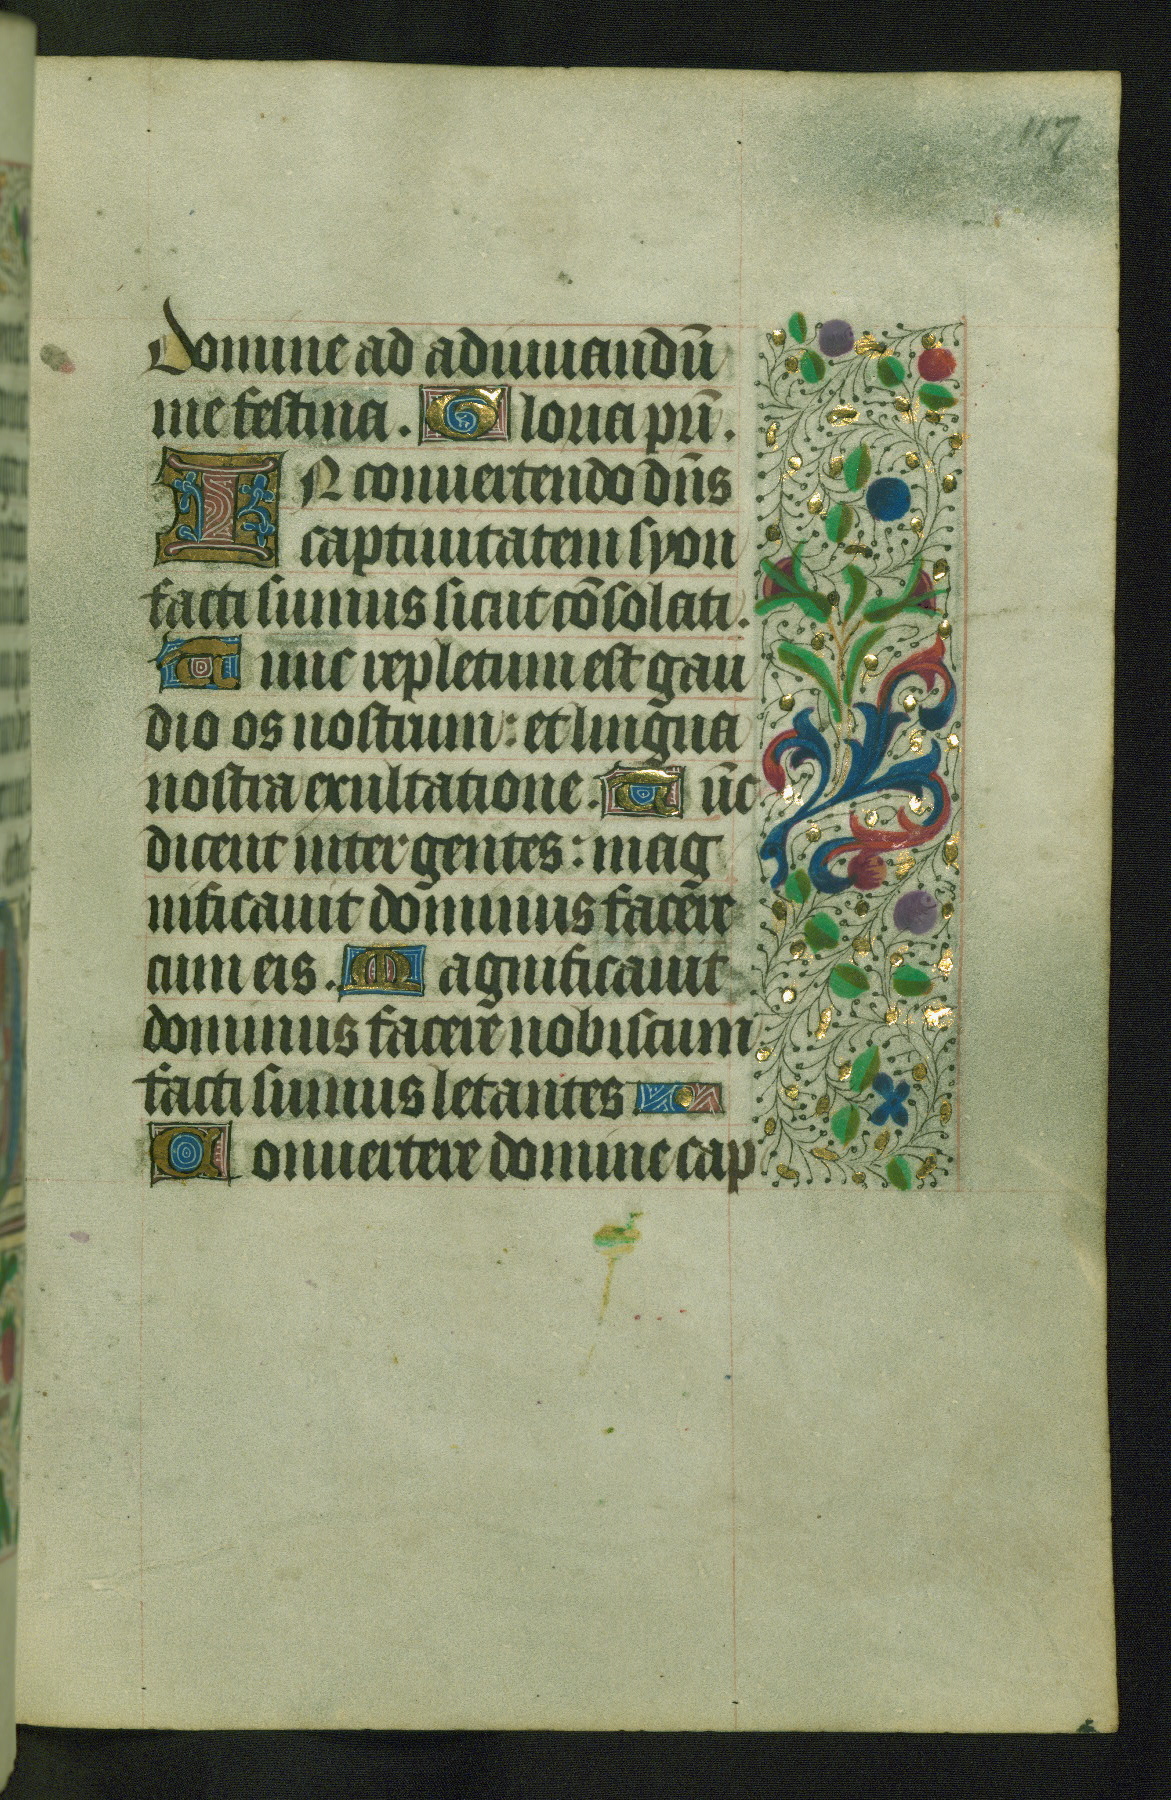 117
Domine ad adiuuandū
me festina. Gloria pr̄i.
IN conuertendo dn̄s
captiuitatem syon
facti sumus sicut cōsolati.
Tunc repletum est gau
dio os nostrum: et lingua
nostra exultatione. Tūc
dicent inter gentes: mag
nificauit dominus facere
cum eis. Magnificauit
dominus facere nobiscum
facti sumus letantes
Conuertere domine cap